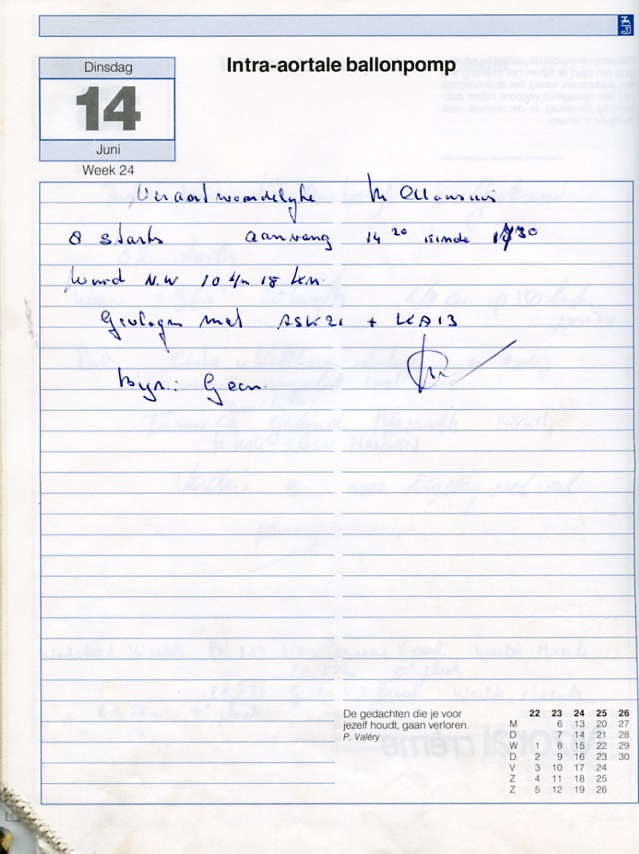 Intra-aortale ballonpomp
Dinsdag
14
Juni
Week 24
Verantwoordelyke M
8 starts aanvang 14 20 einde 30
Wind N.W 10 4n 18 km.
Gevlogen met ASK21 + KA13
Byz.: Geen.
De gedachten die je voor
jezelf houdt, gaan verloren.
P. Valéry
22 23 24 25 26
M 6 13 20 27
D 7 14 21 28
W 1 8 15 22 29
D 2 9 16 23 30
V 3 10 17 24
Z 4 11 18 25
Z 5 12 19 26